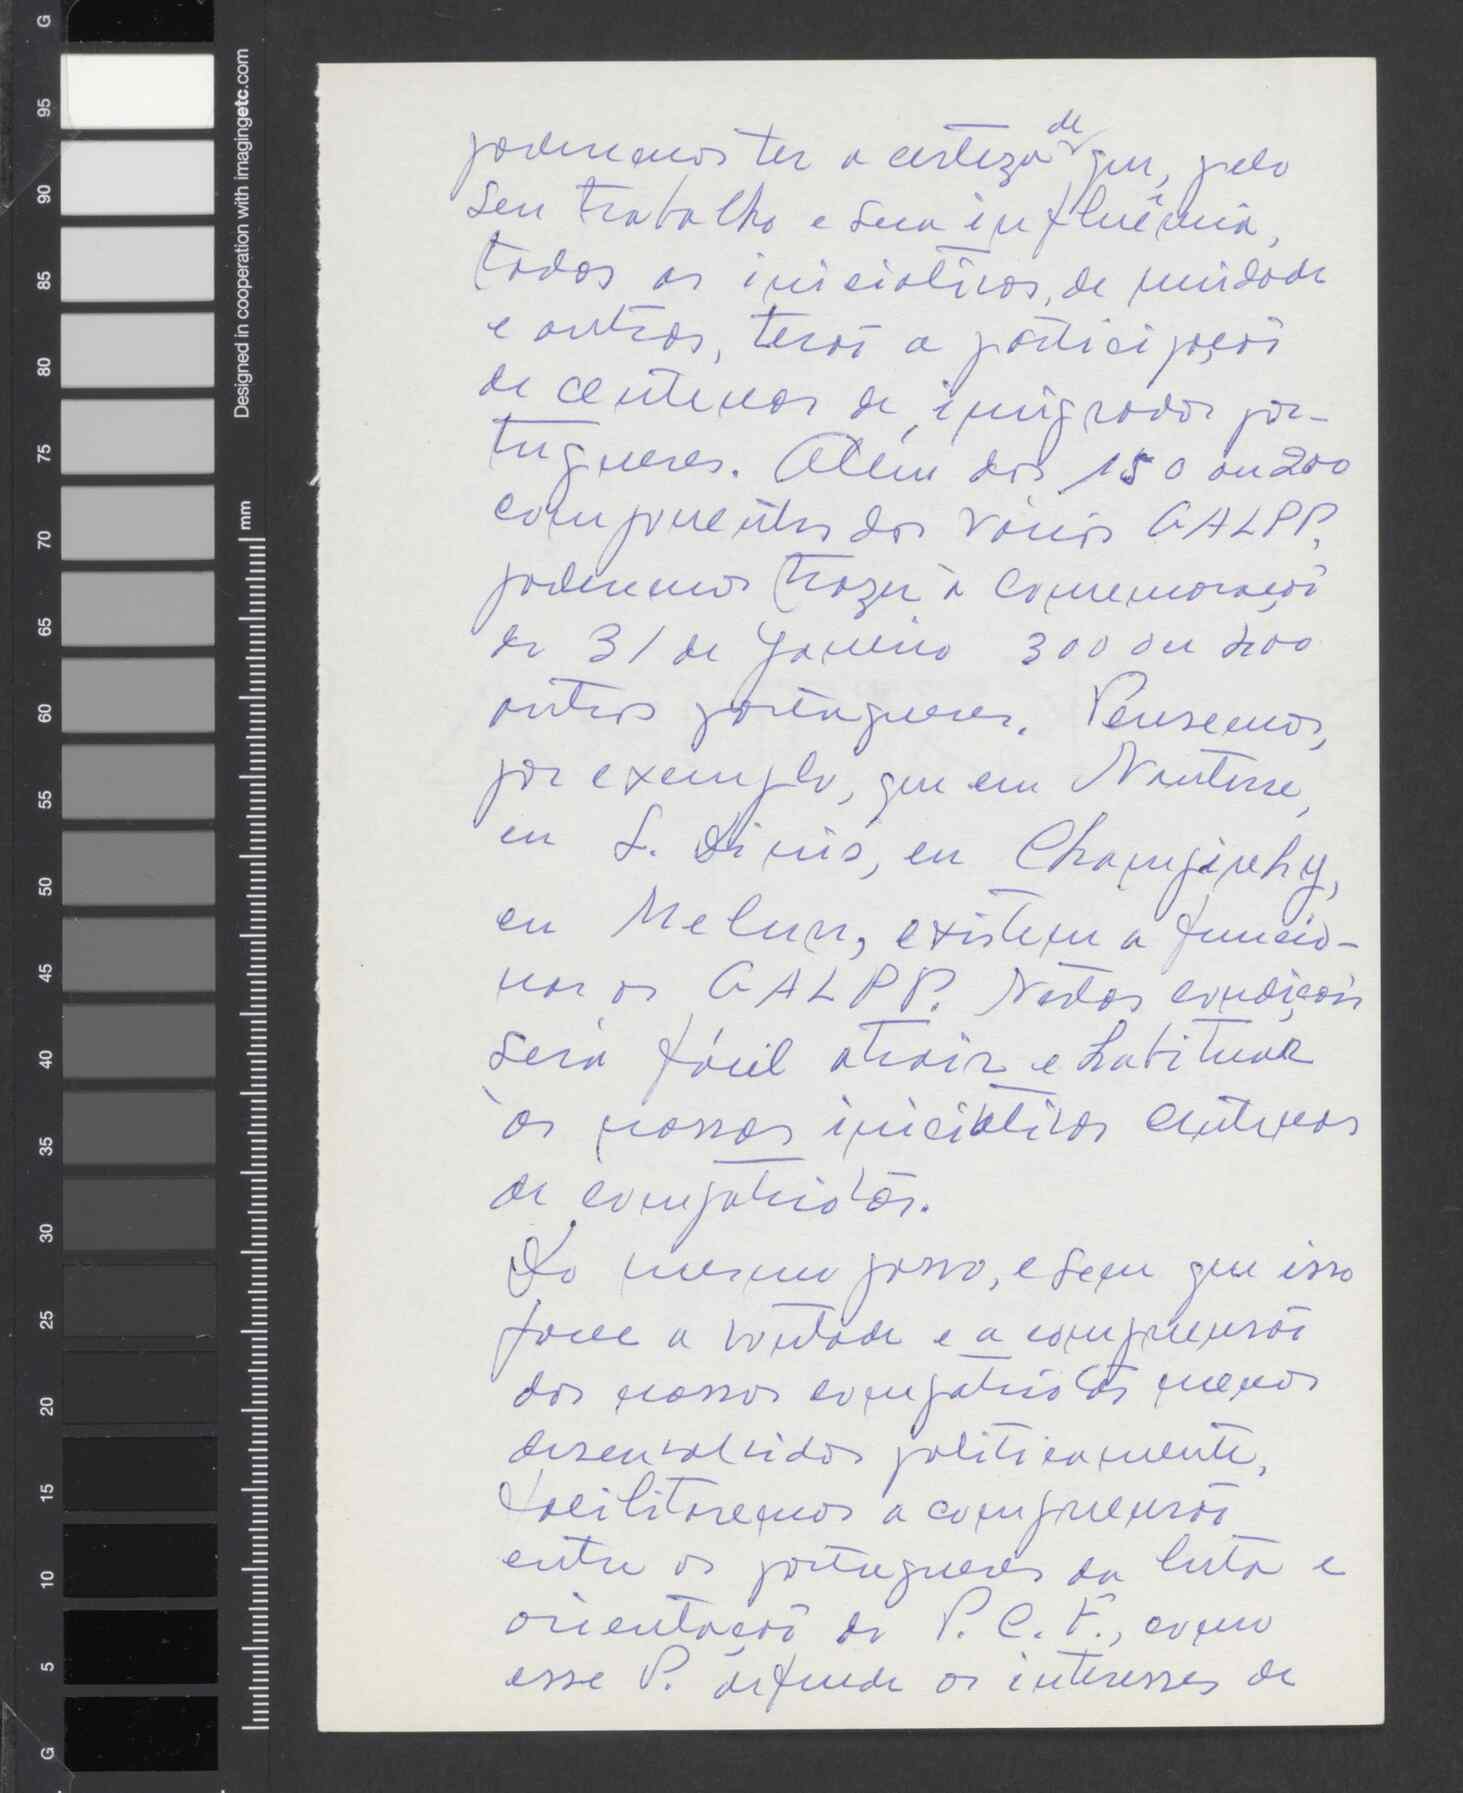 G
95
90
85
80
75
70
65
60
55
50
45
40
35
30
25
20
15
10
5
G
Designed in cooperation with imagingetc.com
mm
poderemos ter a certeza de que, pelo
seu trabalho e sua influência,
todas as iniciativas, de unidade
e outras, terão a participação
de centenas de imigrados por-
tugueses. Além dos 150 ou 200
componentes dos vários GALPP,
poderemos trazer à comemoração
do 31 de Janeiro 300 ou 400
outros portugueses. Pensemos,
por exemplo, que em Nanterre,
em S. Dinis, em Champinhy,
em Melun, existem a funcio-
nar os GALPP. Nestas condições
será fácil atrair e habituar
às nossas iniciativas centenas
de compatriotas.
Do mesmo passo, e sem que isso
force a vontade e a compreensão
dos nossos compatriotas menos
desenvolvidos politicamente,
facilitaremos a compreensão
entre os portugueses da luta e
orientação do P.C.F., como
esse P. defende os interesses de